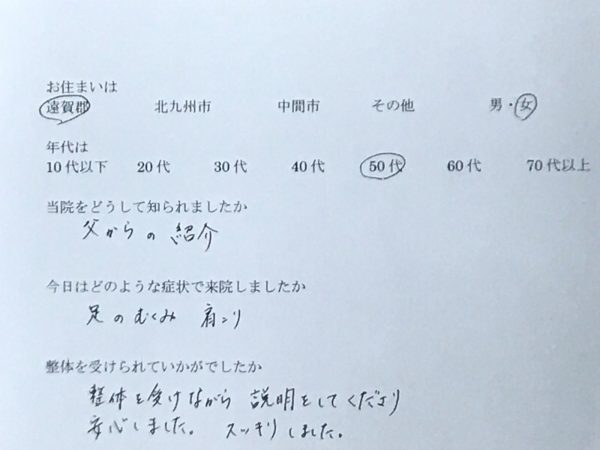 お住まいは
遠賀郡 北九州市 中間市 その他 男・女
年代は
10代以下 20代 30代 40代 50代 60代 70代以上
当院をどうして知られましたか
父からの紹介
今日はどのような症状で来院しましたか
足のむくみ 肩こり
整体を受けられていかがでしたか
整体を受けながら説明をしてくださり
安心しました。 スッキリしました。